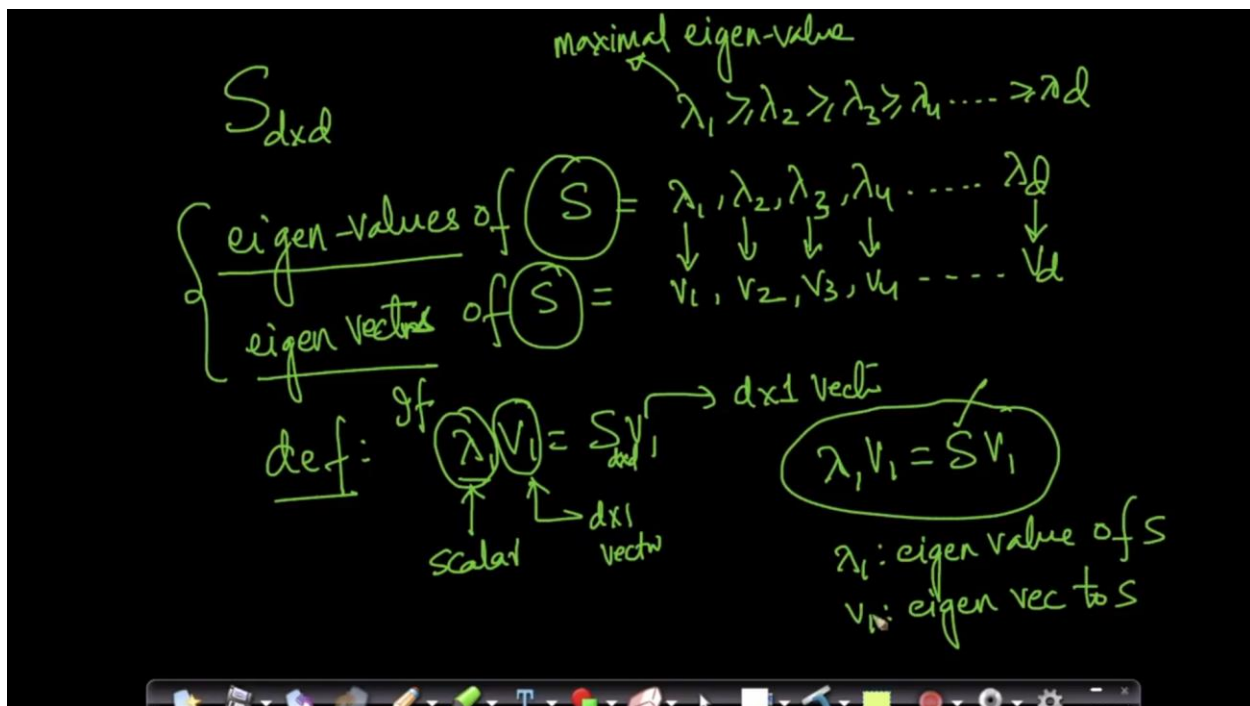 maximal eigen-value
S dxd
λ1 ≥ λ2 ≥ λ3 ≥ λ4 ..... ≥ λd
eigen-values of S = λ1, λ2, λ3, λ4 ...... λd
eigen vectors of S = V1, V2, V3, V4 ------ Vd
def: If λ1 V1 = S dxd V1 → dx1 vect
λ1 V1 = S V1
scalar
dx1
vector
λ1: eigen value of S
V1: eigen vec to S
T